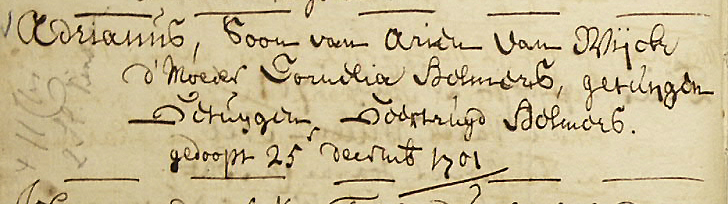 Adrianus, Soon van Arien van Wijck
d'Moeder Cornelia Helmers, getuijgen
Getuijgen Geertruijd Helmers.
gedoopt 25 decemb 1701